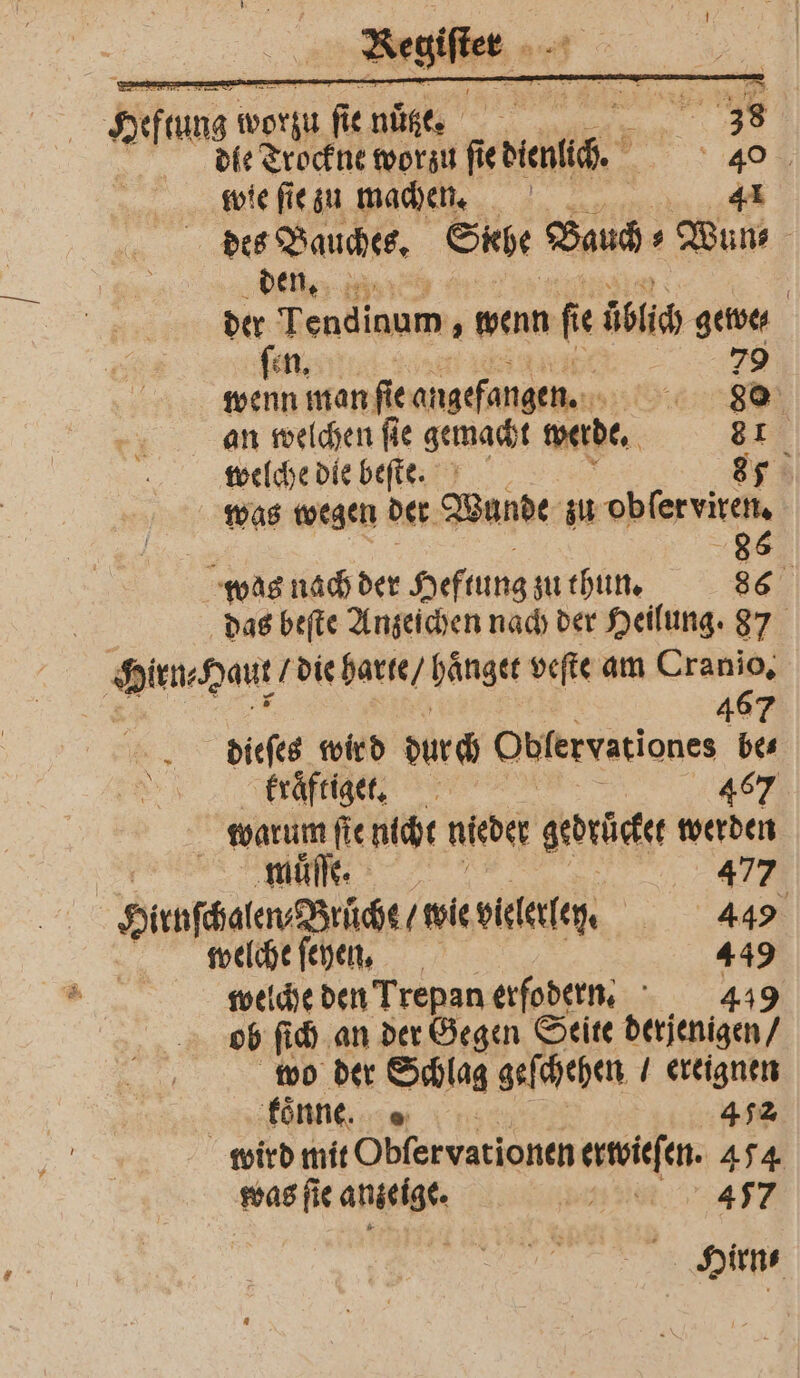 Regiſter
Heftung worzu ſie nuͤtze. 38
die Trockne worzu ſie dienlich. 40
wie ſie zu machen. 41
des Bauches. Siehe Bauch⸗Wun⸗
den.
der Tendinum, wenn ſie uͤblich gewe⸗
ſen. 79
wenn man ſie angefangen. 80
an welchen ſie gemacht werde. 81
welche die beſte. 85
was wegen der Wunde zu obſerviren.
86
was nach der Heftung zu thun. 86
das beſte Anzeichen nach der Heilung. 87
Hirn⸗Haut / die harte / haͤnget veſte am Cranio.
467
dieſes wird durch Obſervationes be⸗
kraͤftiget. 467
warum ſie nicht nieder gedruͤcket werden
muͤſſe. 477
Hirnſchalen⸗Bruͤche / wie vielerley. 449
welche ſeyen. 449
welche den Trepan erfodern. 449
ob ſich an der Gegen Seite derjenigen /
wo der Schlag geſchehen / ereignen
koͤnne. 452
wird mit Obſervationen erwieſen. 454
was ſie anzeige. 457
Hirn⸗